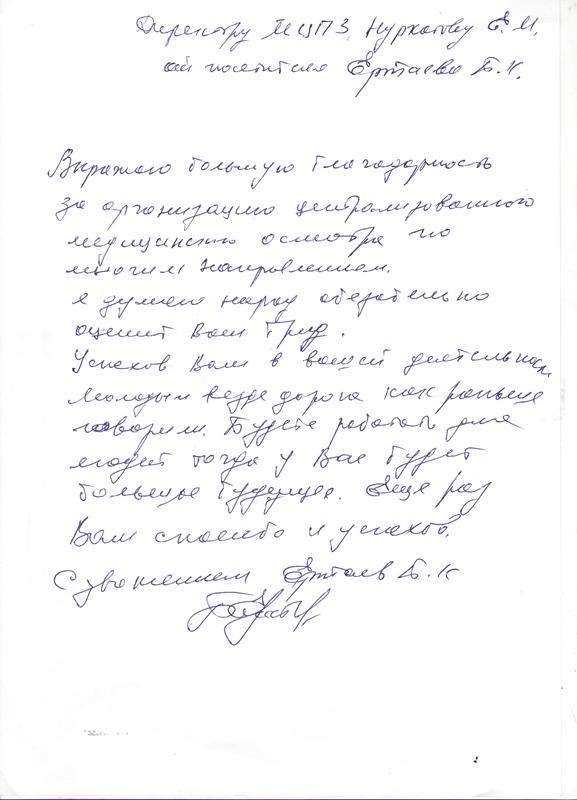 Директору МЦПЗ Нуркатову Е.М.
от посетителя Ертаева Б.К.
Выражаю большую благодарность
за организацию централизованного
медицинского осмотра по
многим направлениям.
я думаю народ обезательно
оценит Ваш труд.
Успехов Вам в вашей деятельности
Молодым везде дорога как раньше
говорили. Будете работать для
людей тогда у Вас будет
большое будущее. Еще раз
Вам спасибо и успехов.
С уважением Ертаев Б.К